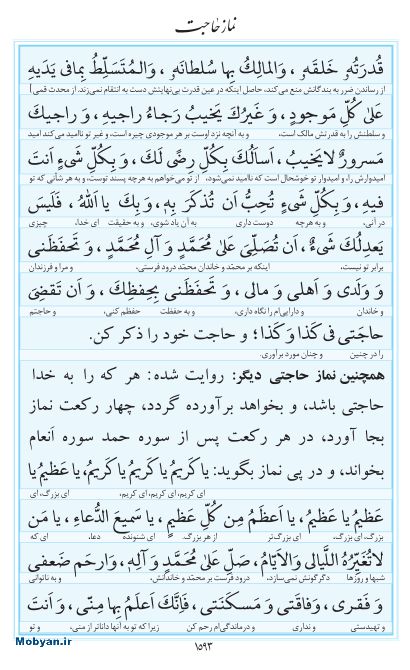 نماز حاجت
قُدرَتُهُ خَلقَهُ ، وَالمالِكُ بِها سُلطانَهُ ، وَالمُتَسَلِّطُ بِمافی یَدَیهِ
از رساندن ضرر به بندگانش منع می‌کند، حاصل اینکه در عین قدرت بی‌نهایتش دست به انتقام نمی‌زند. از محدث قمی]
عَلیٰ کُلِّ مَوجودٍ ، وَ غَیرُكَ یَخیبُ رَجاءُ راجیهِ ، وَ راجیكَ
و سلطنتش را به قدرتش مالک است، و به آنچه نزد اوست بر هر موجودی چیره است، و غیر تو ناامید می‌کند امید
مَسرورٌ لایَخیبُ، اَسأَلُكَ بِکُلِّ رِضًی لَكَ ، وَ بِکُلِّ شَیءٍ اَنتَ
امیدوارش را، و امیدوار تو خوشحال است که ناامید نمی‌شود، از تو می‌خواهم به هرچه پسند توست، و به هر شأنی که تو
فیهِ ، وَ بِکُلِّ شَیءٍ تُحِبُّ اَن تُذکَرَ بِهِ ، وَ بِكَ یا اَللهُ ، فَلَیسَ
در آنی، و به هرچه دوست داری به آن یاد شوی، و به حقیقت ای خدا، چیزی
یَعدِلُكَ شَیءٌ ، اَن تُصَلِّیَ عَلیٰ مُحَمَّدٍ وَ آلِ مُحَمَّدٍ ، وَ تَحفَظَنی
برابر تو نیست، اینکه بر محمّد و خاندان محمّد درود فرستی، و مرا و فرزندان
وَ وَلَدی وَ اَهلی وَ مالی ، وَ تَحفَظَنی بِحِفظِكَ ، وَ اَن تَقضِیَ
و خاندان و دارایی‌ام را نگاه داری، و به حفظت حفظم کنی، و حاجتم
حاجَتی فی کَذا وَ کَذا ؛ و حاجت خود را ذکر کن.
را در چنین و چنان مورد برآوری.
همچنین نماز حاجتی دیگر: روایت شده: هر که را به خدا
حاجتی باشد، و بخواهد برآورده گردد، چهار رکعت نماز
بجا آورد، در هر رکعت پس از سوره حمد سوره اَنعام
بخواند، و در پی نماز بگوید: یا کَریمُ یا کَریمُ یا کَریمُ، یا عَظیمُ یا
ای کریم، ای کریم، ای کریم، ای بزرگ، ای
عَظیمُ یا عَظیمُ ، یا اَعظَمُ مِن کُلِّ عَظیمٍ ، یا سَمیعَ الدُّعاءِ ، یا مَن
بزرگ، ای بزرگ، ای بزرگ‌تر از هر بزرگ، ای شنونده دعا، ای که
لاتُغَیِّرُهُ اللَّیالی وَالاَیّامُ ، صَلِّ عَلیٰ مُحَمَّدٍ وَ آلِهِ ، وَارحَم ضَعفی
شبها و روزها دگرگونش نمی‌سازد، درود فرست بر محمّد و خاندانش، و به ناتوانی
وَ فَقری ، وَفاقَتی وَ مَسکَنَتی ، فَاِنَّكَ اَعلَمُ بِها مِنّی ، وَ اَنتَ
و تهیدستی و نداری و درماندگی‌ام رحم کن زیرا که تو به آنها داناتر از منی، و تو
۱۵۹۳
Mobyan.ir